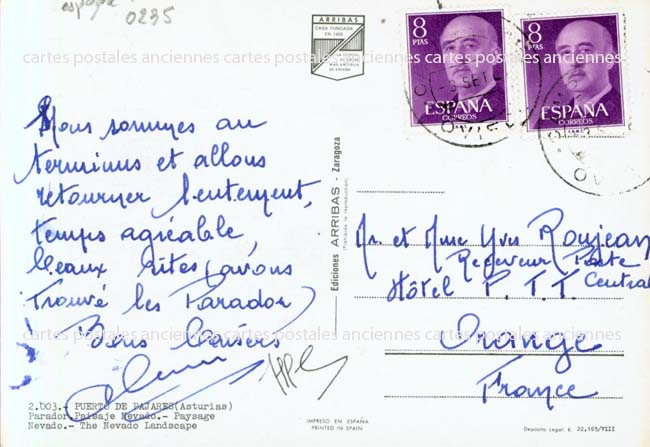 españa
0235
ARRIBAS
CASA FUNDADA
EN 1900
cartes postales anciennes cartes postales anciennes cartes postales anciennes
8
PTAS
ESPAÑA
CORREOS
8
PTAS
ESPAÑA
CORREOS
SET
OVIEDO
Nous sommes au
terminus et allons
retourner lentement,
temps agréable,
beaux sites (avons
Trouvé les Parador)
Bons baisers
Ediciones ARRIBAS - Zaragoza
(Prohibida la reproducción)
Mr. et Mme Yves Roujean
Receveur Poste
Central
Hôtel P. T. T.
Orange
France
cartes postales anciennes cartes postales anciennes cartes postales anciennes
2.003.- PUERTO DE PAJARES (Asturias)
Parador Paisaje Nevado.- Paysage
Nevado.- The Nevado Landscape
IMPRESO EN ESPAÑA
PRINTED IN SPAIN
Depósito Legal: B. 22,165/VIII